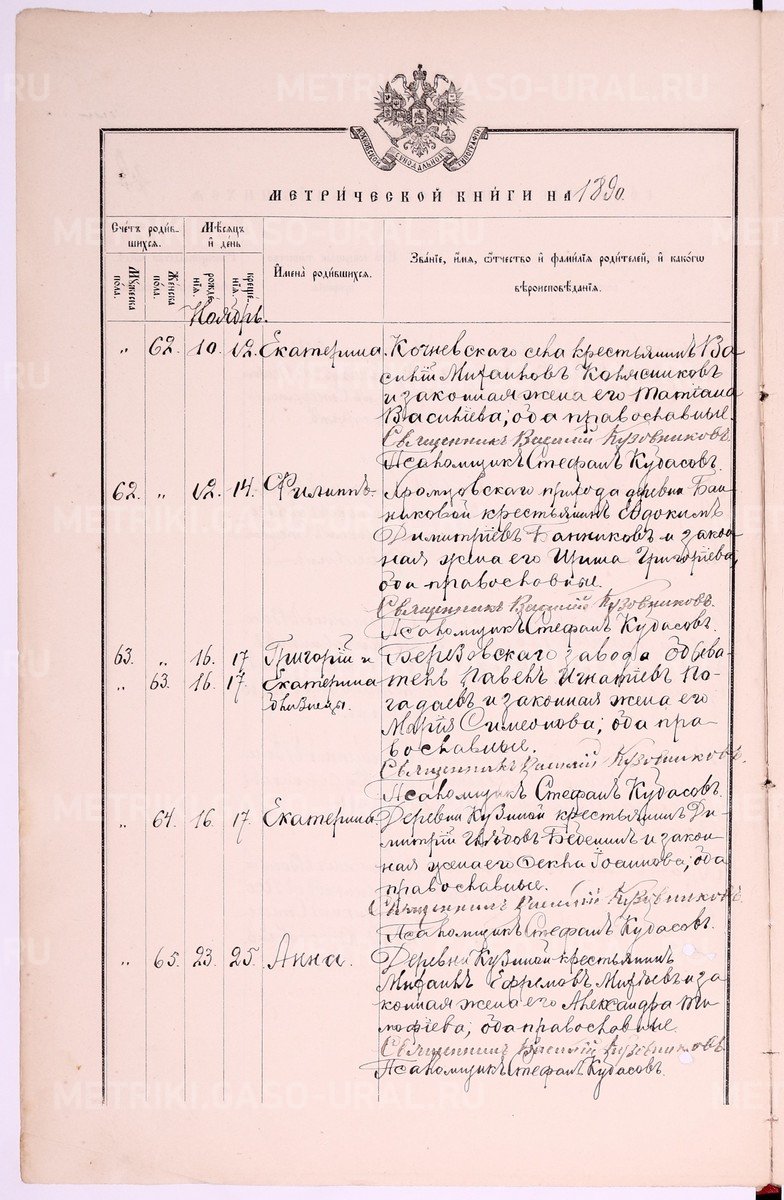 METRIKI.GASO-URAL.RU
МОСКОВСКОЙ СУНОДАЛЬНОЙ ТУПОГРАФІИ
МЕТРИ́ЧЕСКОЙ КНИ́ГИ НА 1890.
Сче́тъ роди́вшихся.
Мужеска пола.
Женска пола.
Мѣсѧцъ и́ де́нь
рожде́нїѧ.
креще́нїѧ.
И҆мена̀ роди́вшихсѧ.
Зва́нїе, и҆́мѧ, ѻ҆́тчество и҆ фами́лїѧ роди́телей, и҆ како́гѡ вѣроисповѣ́данїѧ.
Ноябрь.
„ 62. 10. 12. Екатерина. Кочневскаго села крестьянинъ Ва
силій Михаиловъ Колясниковъ
и законная жена его Татіана
Василіева; оба православные.
Священникъ Василій Кузовниковъ.
Псаломщикъ Стефанъ Кудасовъ.
62. „ 12. 14. Филиппъ. прихода деревни Бан
никовой крестьянинъ Евдокимъ
Димитріевъ Банниковъ и закон
ная жена его Ирина Григоріева,
оба православные.
Священникъ Василій Кузовниковъ.
Псаломщикъ Стефанъ Кудасовъ.
63. „ 16. 17 Григорій и Березовскаго завода обыва
„ 63. 16. 17. Екатерина тель Павелъ Игнатіевъ По
близнецы. гадаевъ и законная жена его
Марія Симеонова; оба пра
вославные.
Священникъ Василій Кузовниковъ.
Псаломщикъ Стефанъ Кудасовъ.
„ 64. 16. 17. Екатерина. Деревни Кузиной крестьянинъ Ди
митрій и закон
ная жена его Фекла Іоаннова; оба
православные.
Священникъ Василій Кузовниковъ
Псаломщикъ Стефанъ Кудасовъ.
„ 65. 23. 25. Анна. Деревни Кузиной крестьянинъ
Михаилъ Ефремовъ и за
конная жена его Александра Ти
мофіева; оба православные.
Священникъ Василій Кузовниковъ
Псаломщикъ Стефанъ Кудасовъ.